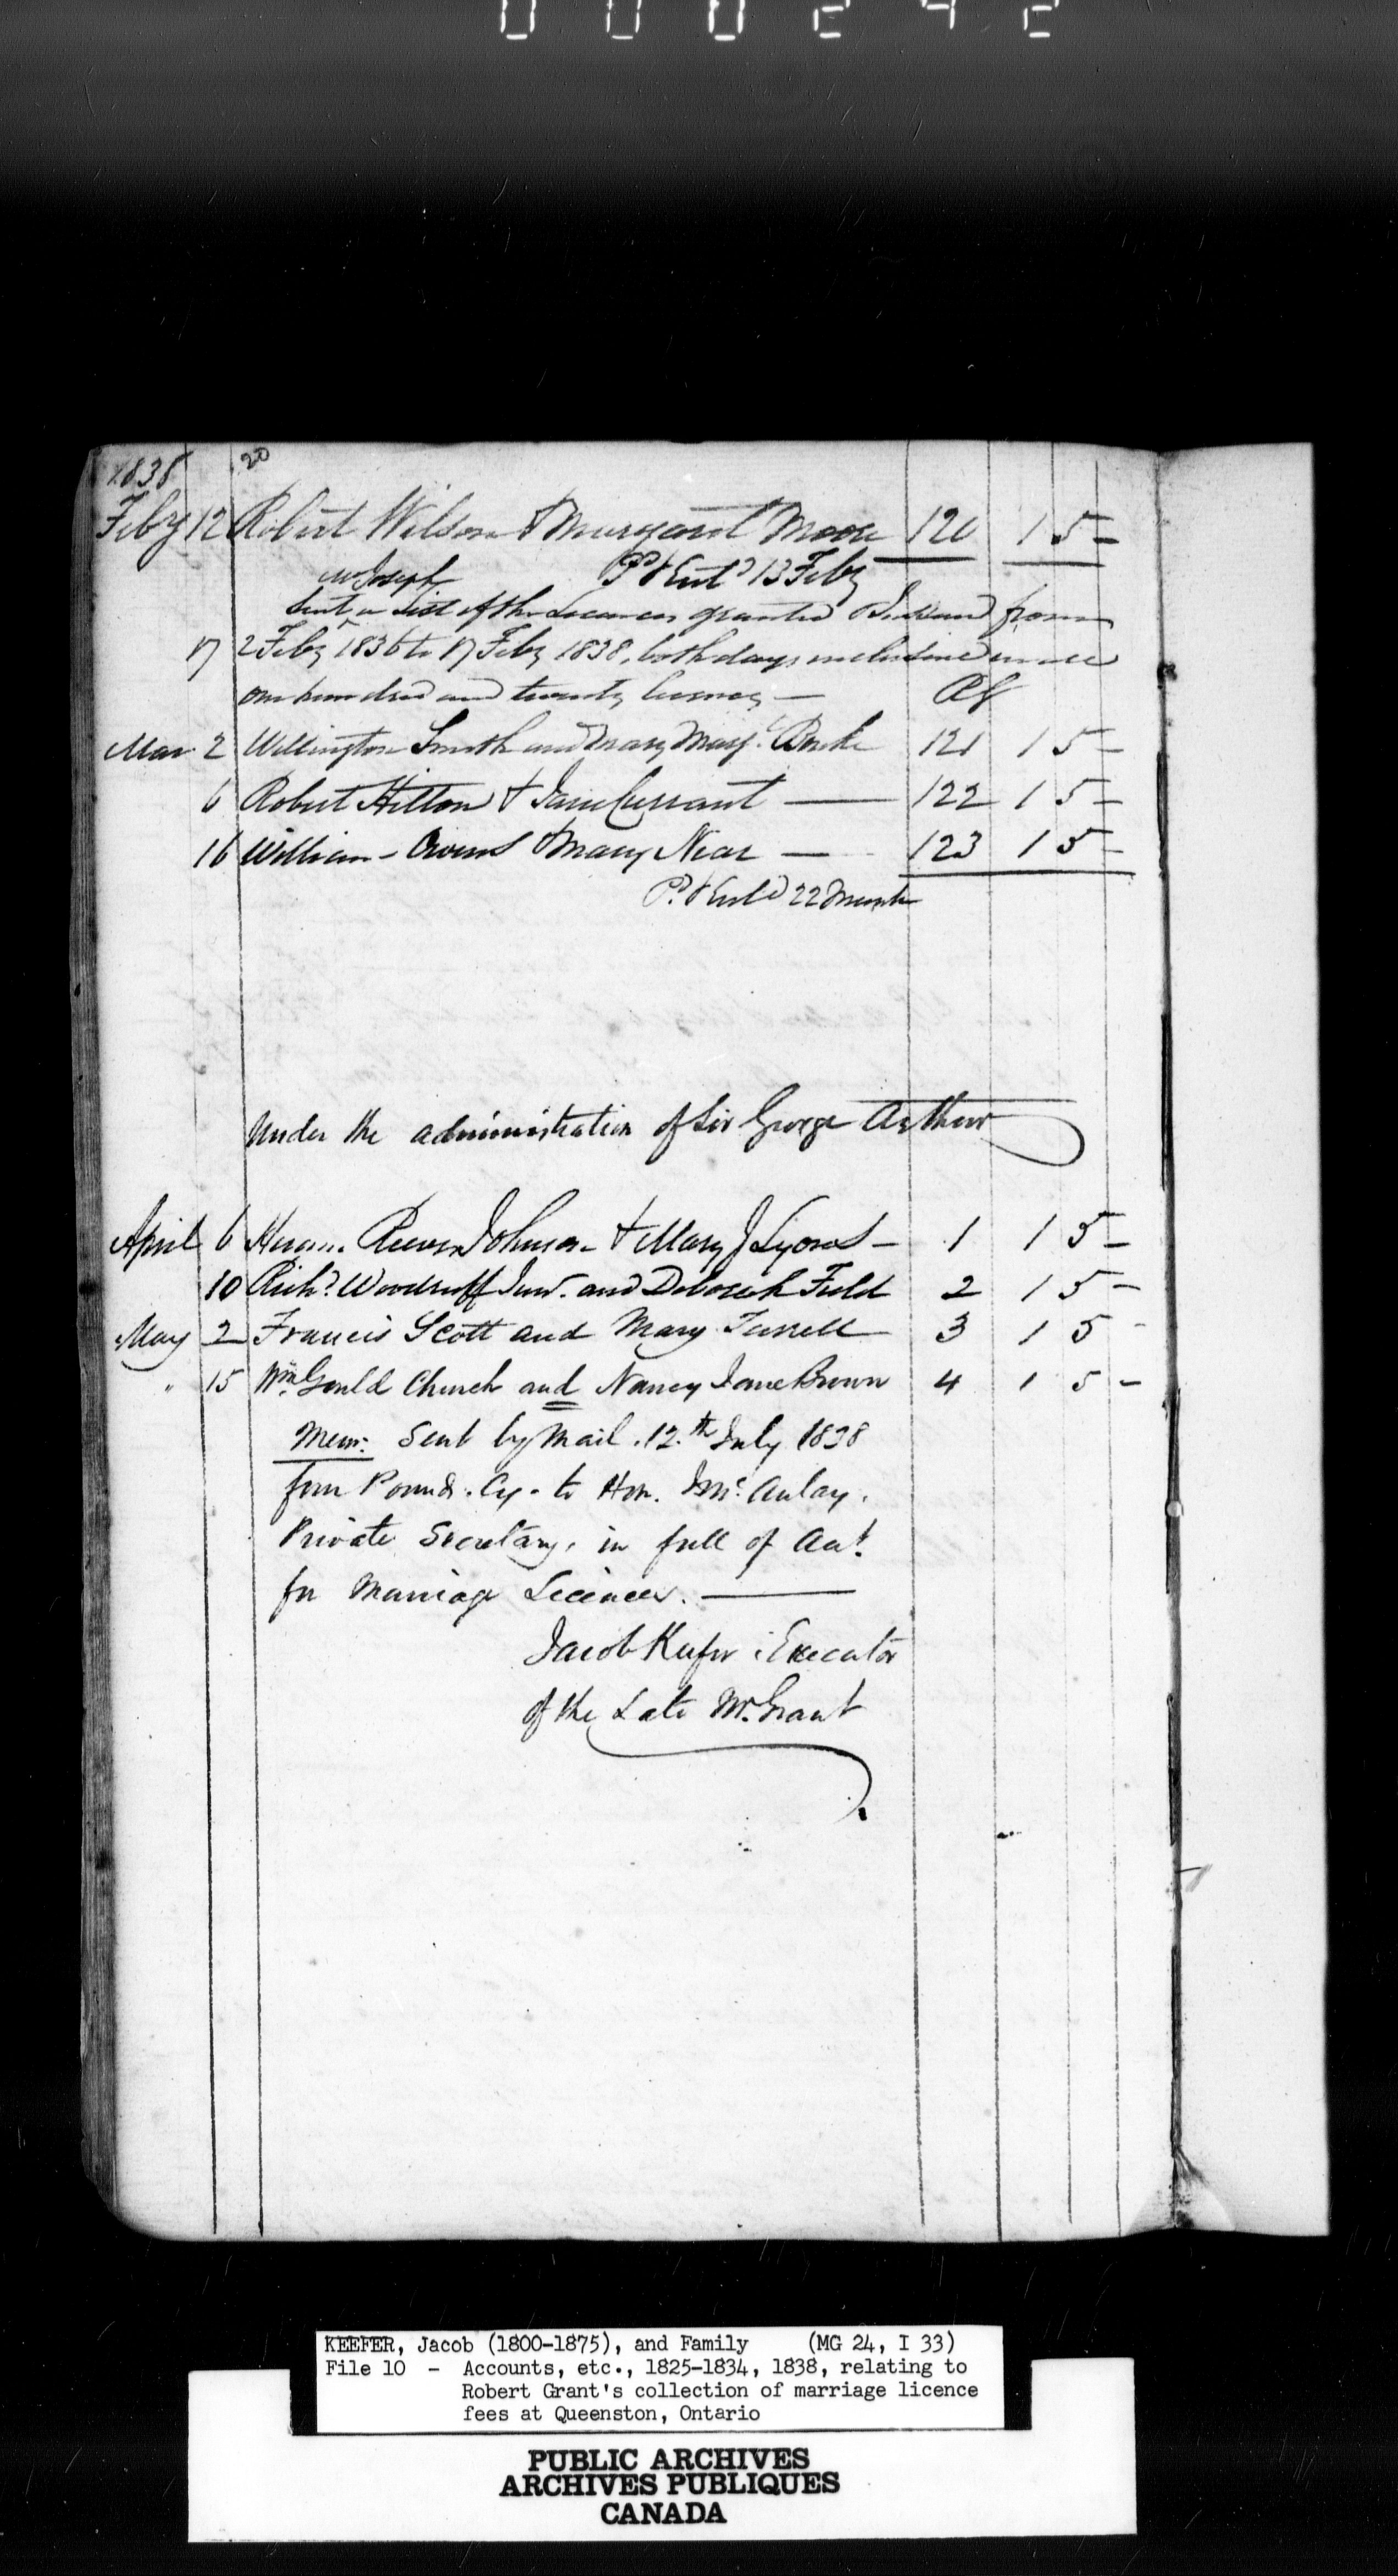 000242
1838 20
Feby 12 Robert Wilson & Margaret Moore 120 1 5 -
Pd & Entd 13 Feby
W Joseph
Sent a List of the Licences granted & Issued from
17 2 Feby 1836 to 17 Feby 1838, both days inclusive in all
one hundred and twenty licences —
Mar 2 Wellington Smith and Mary Margt 121 1 5 -
6 Robert Hilton & Jane Currant — 122 1 5 -
16 William Owens & Mary Near — 123 1 5 -
Pd & Entd 22 March
Under the administration of Sir George Arthur
April 6 Reeves Johnson & Mary J Lyons - 1 1 5 -
10 Richd. Woodruff Junr. and Deborah Field 2 1 5 -
May 2 Francis Scott and Mary Turrell 3 1 5 -
" 15 Wm. Gould Church and Nancy Jane Brown 4 1 5 -
Mem: Sent by Mail. 12.th July 1838
four Pounds. Cy. to Hon. J McAulay.
Private Secretary, in full of Act.
for Marriage Licences. —
Jacob Keefer Executor
of the Late Mr. Grant
KEEFER, Jacob (1800-1875), and Family (MG 24, I 33)
File 10 - Accounts, etc., 1825-1834, 1838, relating to
Robert Grant's collection of marriage licence
fees at Queenston, Ontario
PUBLIC ARCHIVES
ARCHIVES PUBLIQUES
CANADA